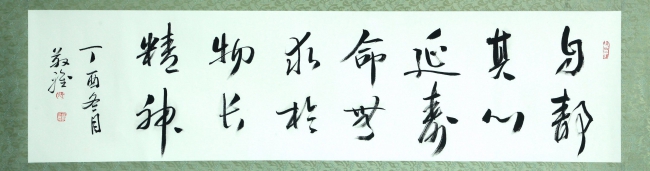 自静
其心
延寿
命無
求於
物长
精神
丁酉冬月